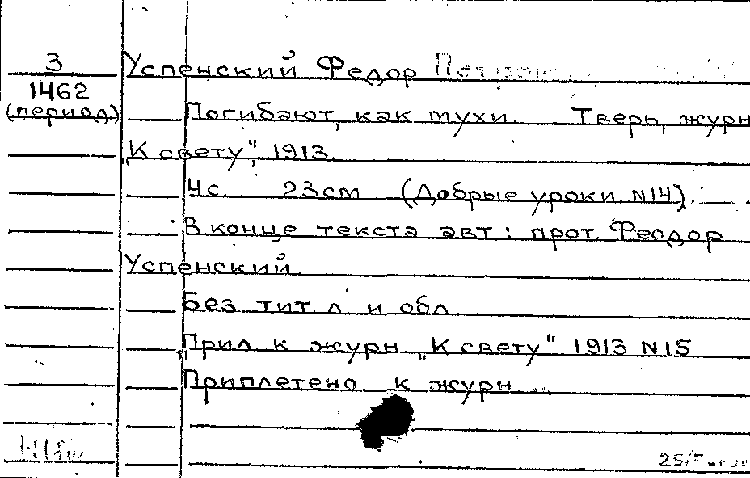 З
1462
(период)
Успенский Федор
Погибают, как мухи. Тверь, журн.
"К свету", 1913.
4 с. 23 см (Добрые уроки N 14).
В конце текста авт: прот. Феодор
Успенский.
Без тит л и обл
Прил к журн „К свету" 1913 N 15
Приплетено к журн.